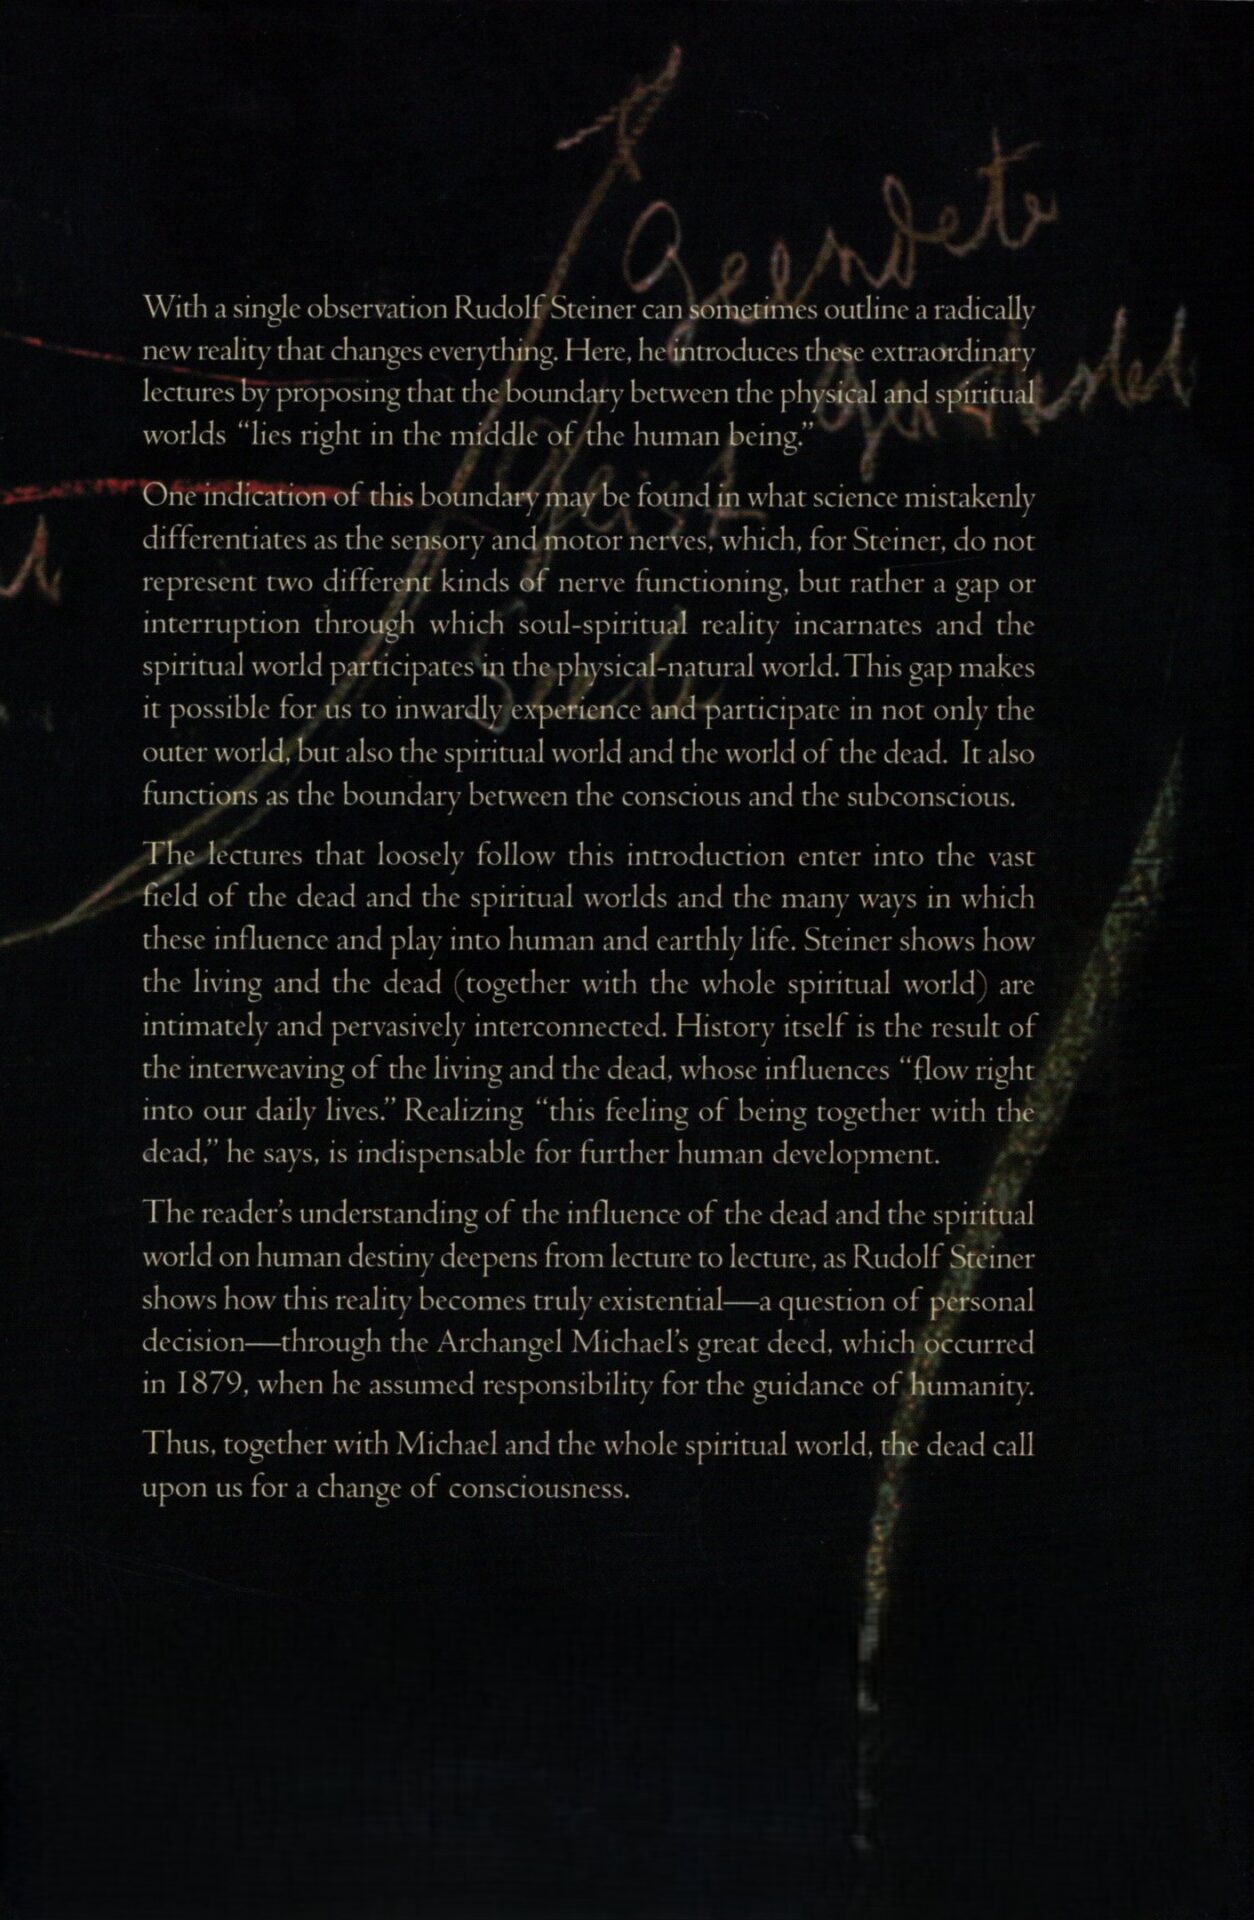 Geendete
Geist
Seele
With a single observation Rudolf Steiner can sometimes outline a radically
new reality that changes everything. Here, he introduces these extraordinary
lectures by proposing that the boundary between the physical and spiritual
worlds “lies right in the middle of the human being.”
One indication of this boundary may be found in what science mistakenly
differentiates as the sensory and motor nerves, which, for Steiner, do not
represent two different kinds of nerve functioning, but rather a gap or
interruption through which soul-spiritual reality incarnates and the
spiritual world participates in the physical-natural world. This gap makes
it possible for us to inwardly experience and participate in not only the
outer world, but also the spiritual world and the world of the dead. It also
functions as the boundary between the conscious and the subconscious.
The lectures that loosely follow this introduction enter into the vast
field of the dead and the spiritual worlds and the many ways in which
these influence and play into human and earthly life. Steiner shows how
the living and the dead (together with the whole spiritual world) are
intimately and pervasively interconnected. History itself is the result of
the interweaving of the living and the dead, whose influences “flow right
into our daily lives.” Realizing “this feeling of being together with the
dead,” he says, is indispensable for further human development.
The reader’s understanding of the influence of the dead and the spiritual
world on human destiny deepens from lecture to lecture, as Rudolf Steiner
shows how this reality becomes truly existential—a question of personal
decision—through the Archangel Michael’s great deed, which occurred
in 1879, when he assumed responsibility for the guidance of humanity.
Thus, together with Michael and the whole spiritual world, the dead call
upon us for a change of consciousness.